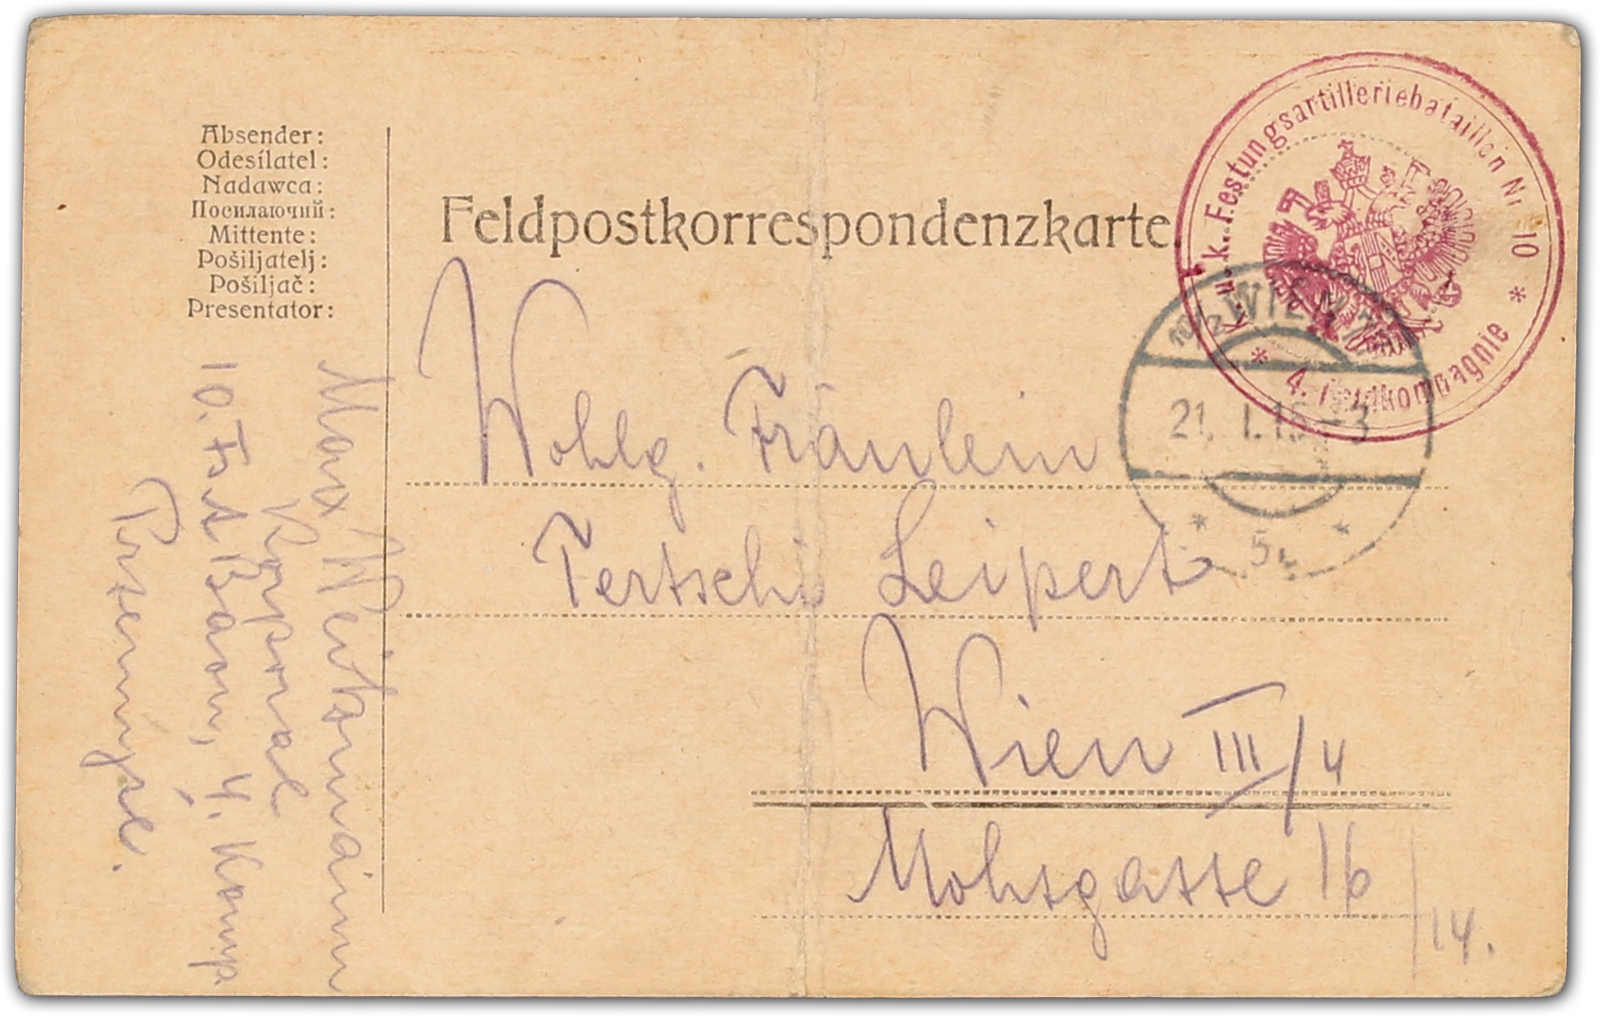 Absender:
Odesílatel:
Nadawca:
Посилаючий:
Mittente:
Pošiljatelj:
Pošiljač:
Presentator:
Feldpostkorrespondenzkarte.
K. u. k. Festungsartilleriebataillon Nr. 10
* 4. Feldkompagnie *
WIEN
21. I. 15-3
* 5c *
Wohlg. Fräulein
Leipert
Wien III/4
Mohsgasse 16
/14.
Max
Korporal
10. FsABaon, 4. Komp
Przemysl.